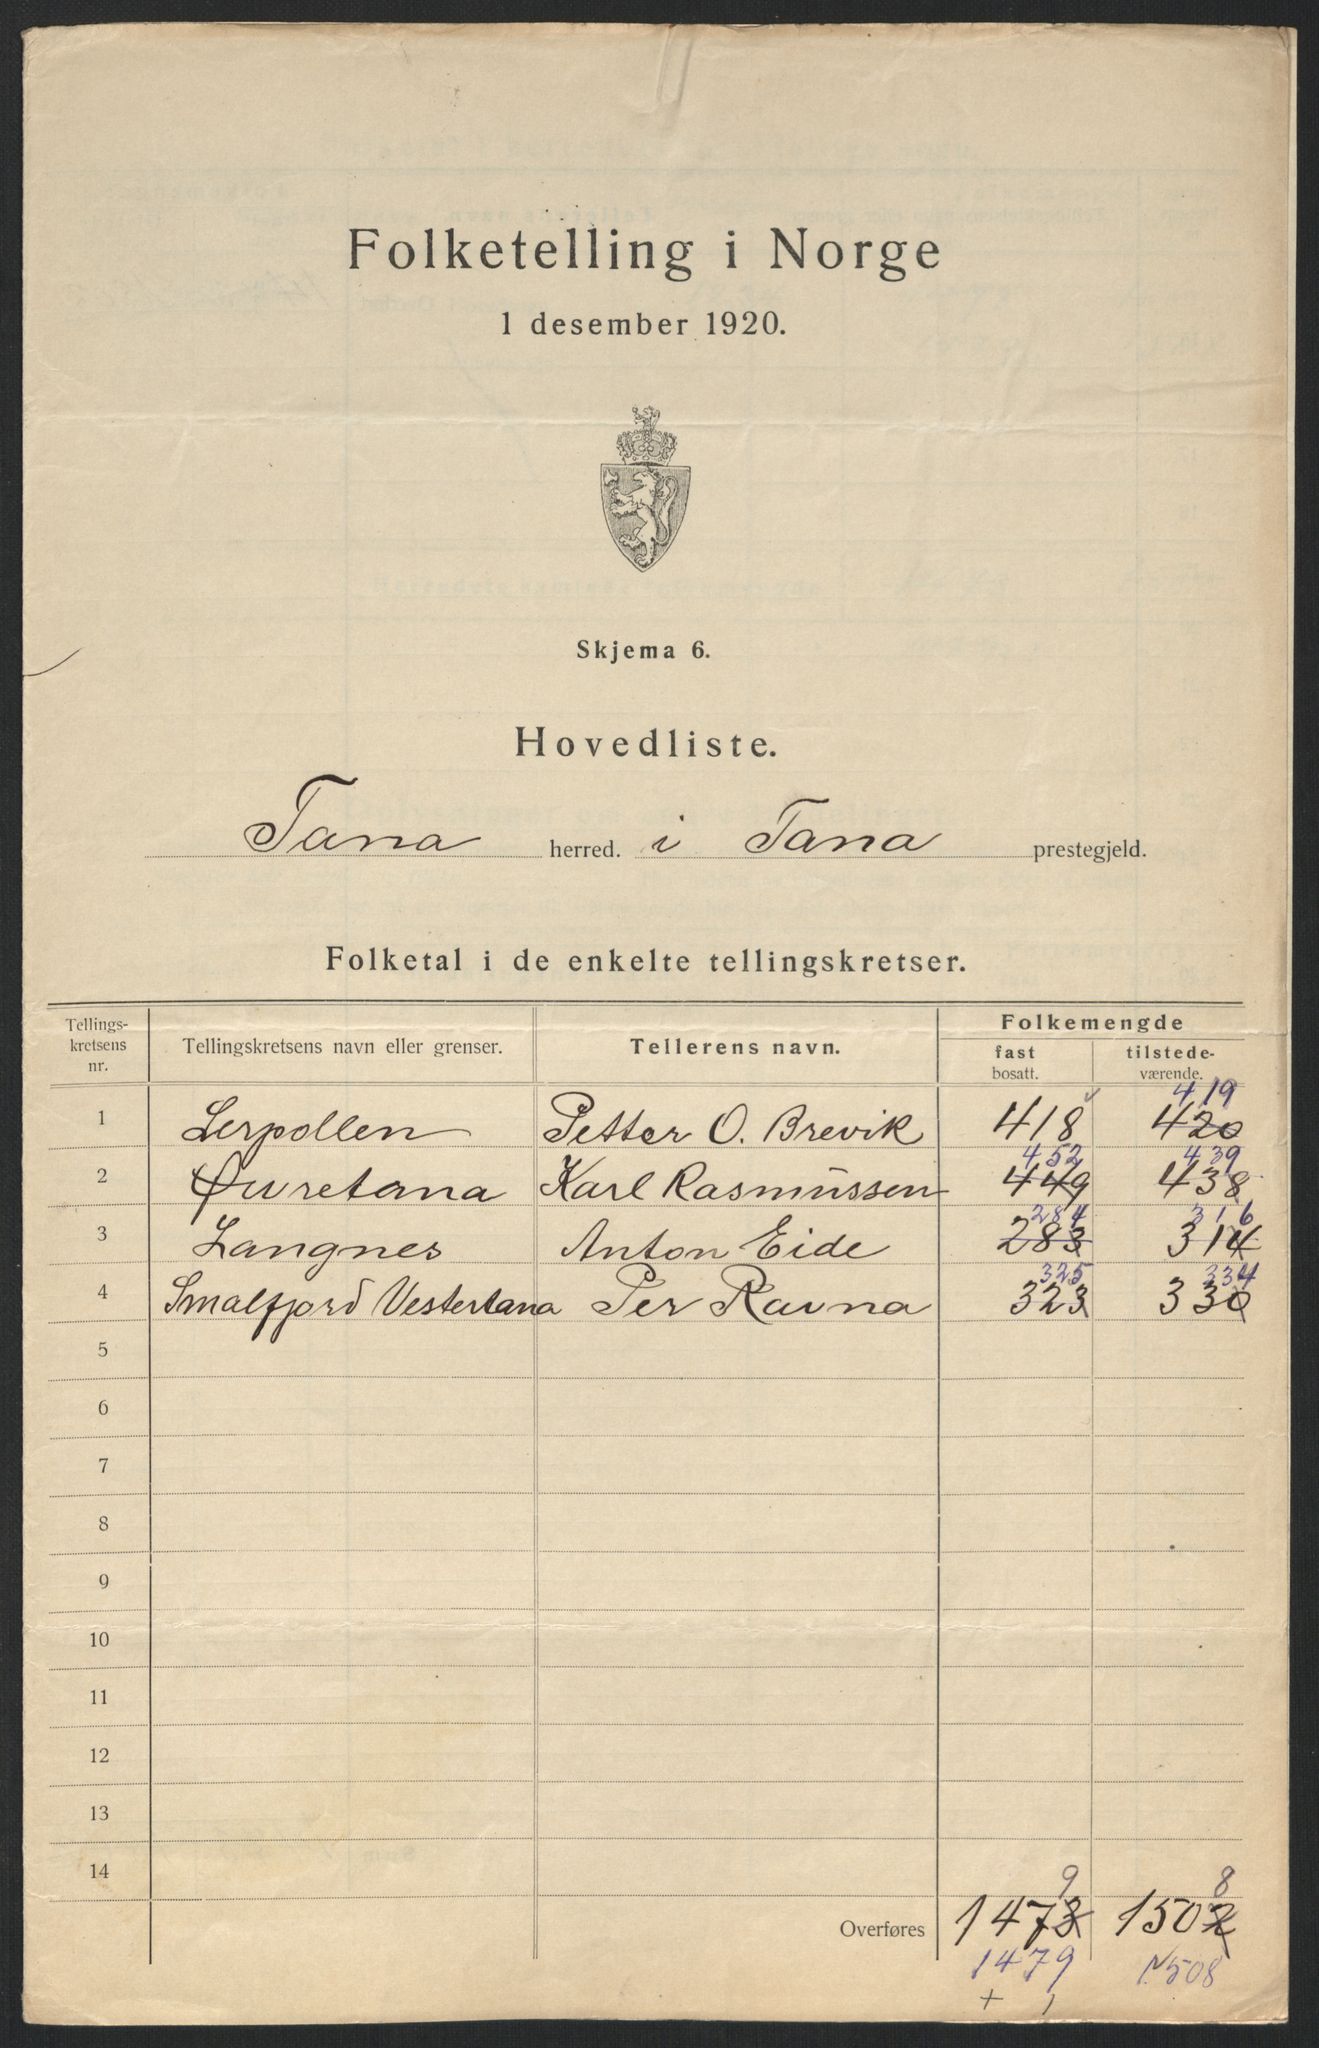 Folketelling i Norge
1 desember 1920.
Skjema 6.
Hovedliste.
Tana herred. i Tana prestegjeld.
Folketal i de enkelte tellingskretser.
Tellings-kretsens nr. Tellingskretsens navn eller grenser. Tellerens navn. Folkemengde
fast bosatt. tilstede-værende.
419
1 Lerpollen Petter O. Brevik 418 420
452 439
2 Øvretana Karl Rasmussen 449 438
284 316
3 Langnes Anton Eide 283 314
325 334
4 Smalfjord Vestertana Per Ravna 323 330
5
6
7
8
9
10
11
12
13
14
9 8
Overføres 1473 1502
1479 1508
+ 1